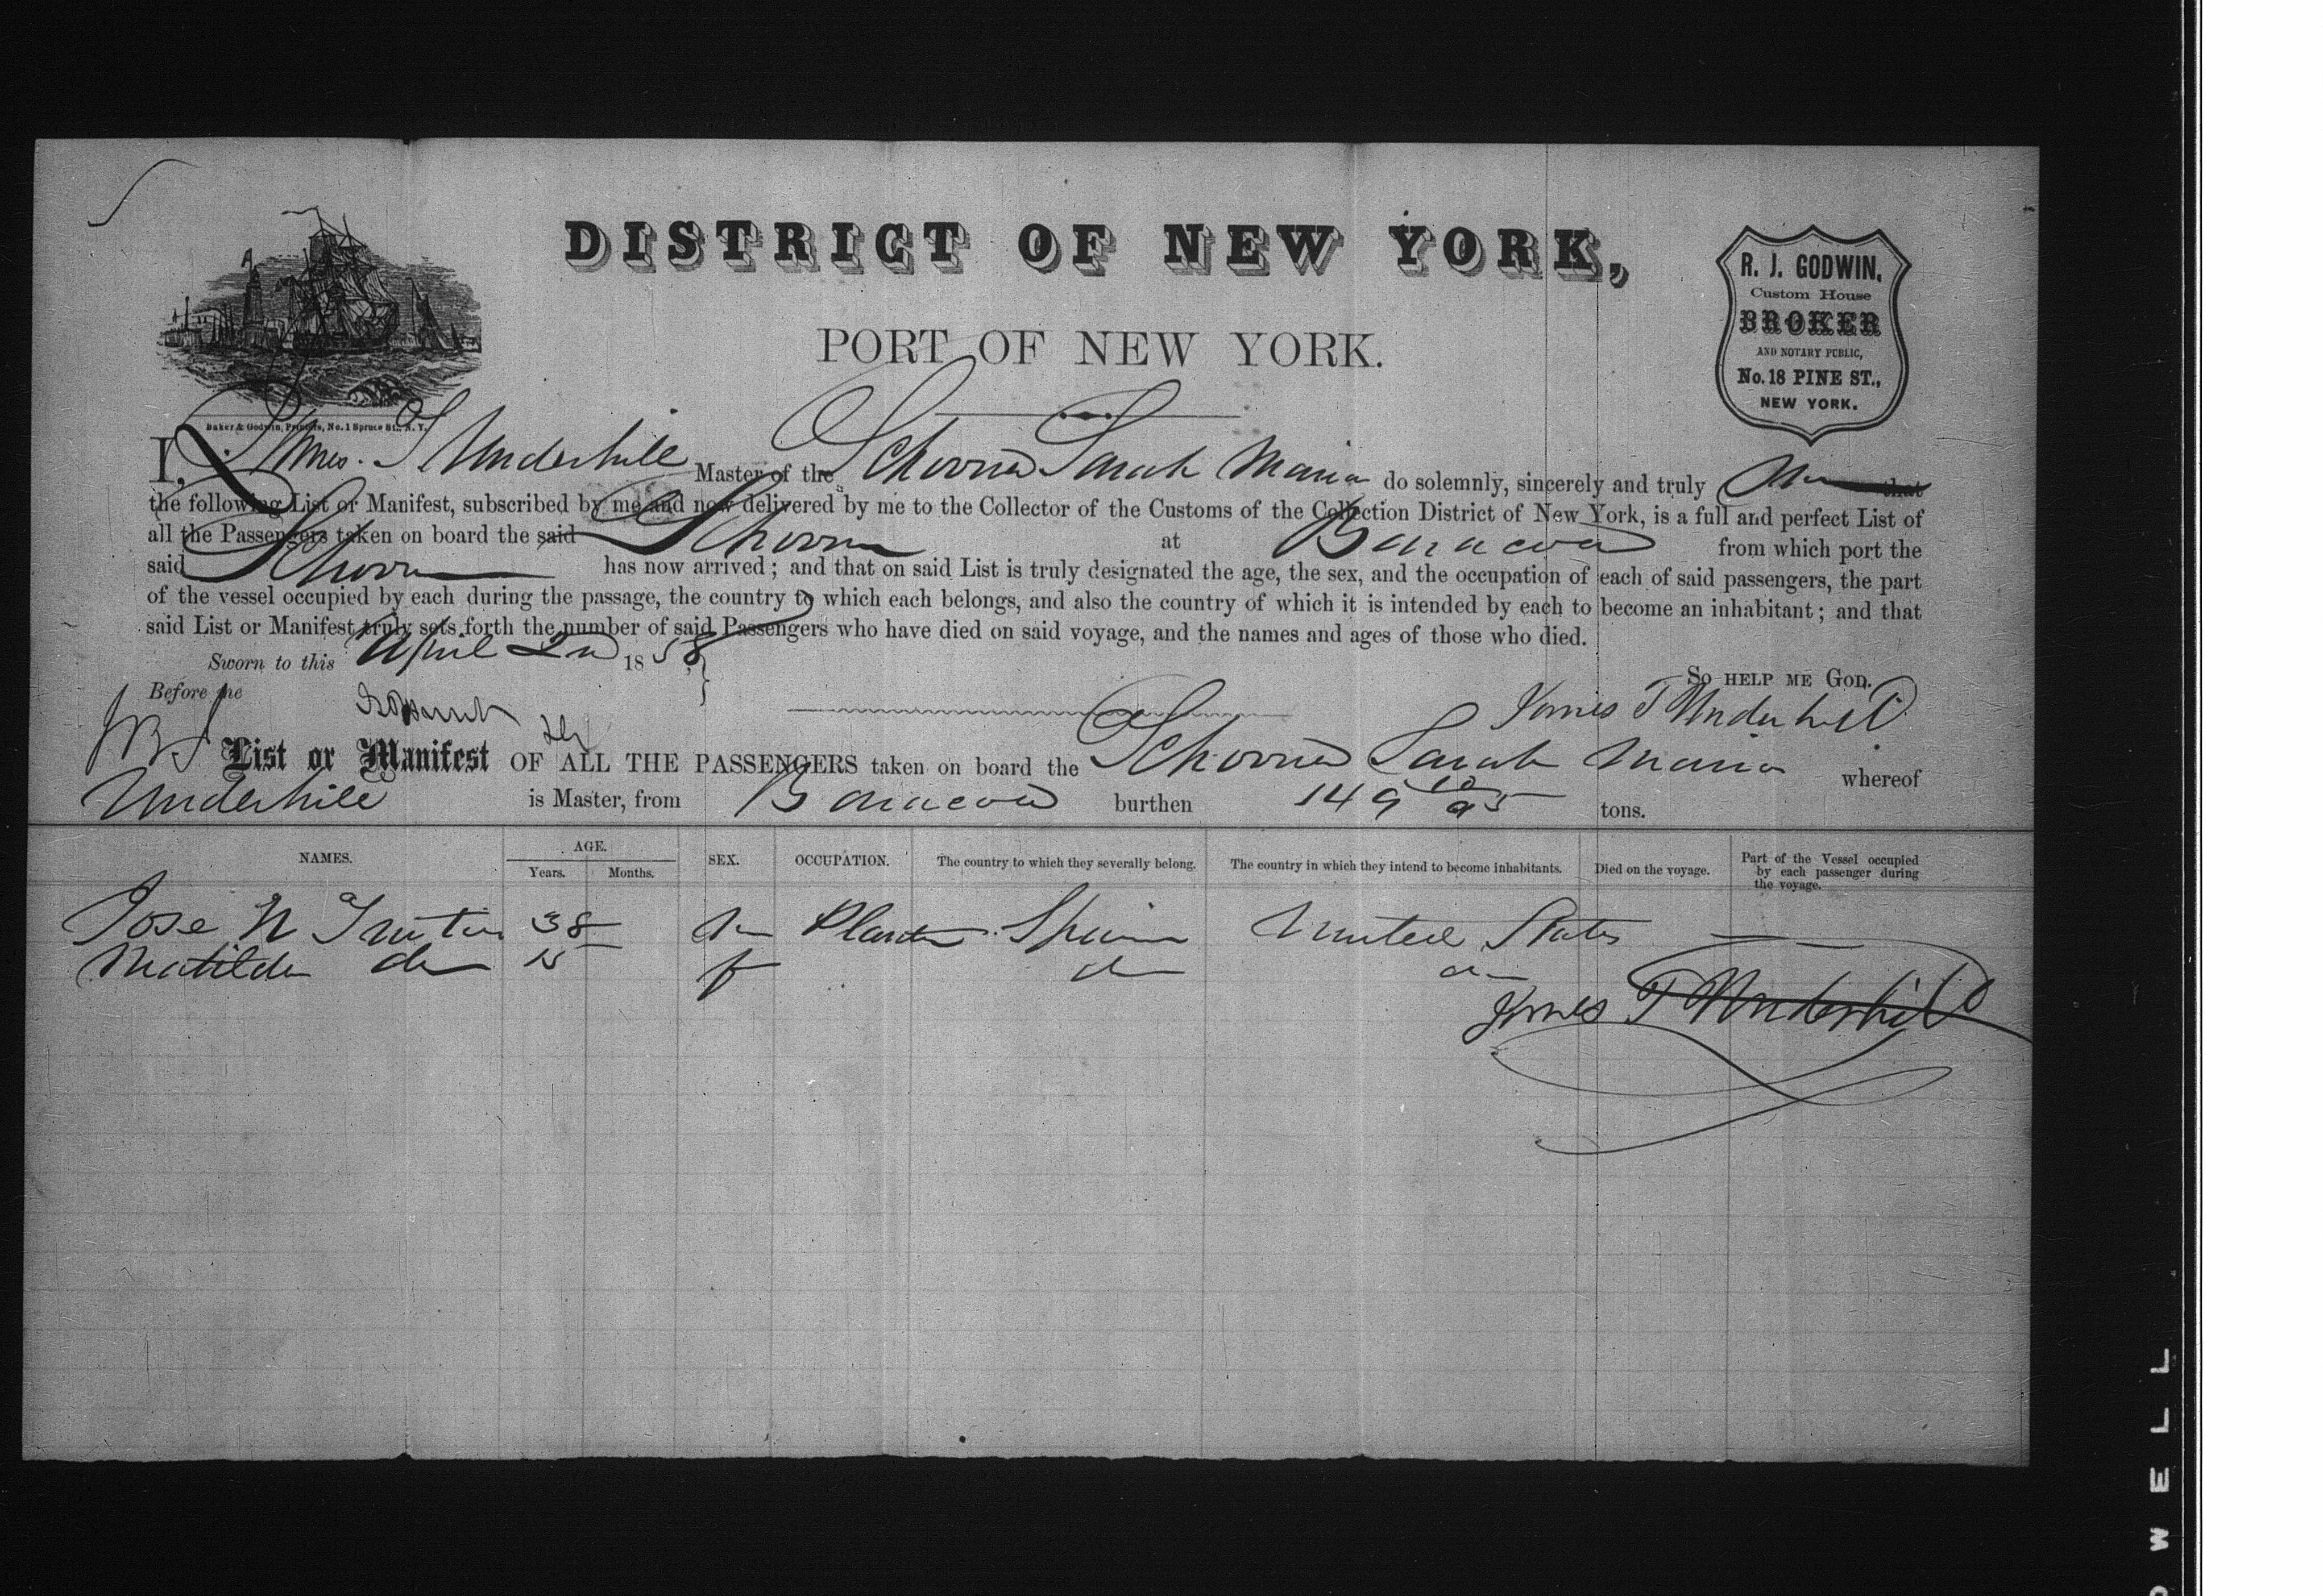 DISTRICT OF NEW YORK,
PORT OF NEW YORK.
R. J. GODWIN,
Custom House
BROKER
AND NOTARY PUBLIC,
No. 18 PINE ST.,
NEW YORK.
Baker & Godwin, Printers, No. 1 Spruce St., N. Y.
I, James T Underhill Master of the Schooner Sarah Maria do solemnly, sincerely and truly that
the following List or Manifest, subscribed by me and now delivered by me to the Collector of the Customs of the Collection District of New York, is a full and perfect List of
all the Passengers taken on board the said Schoon at Baracoa from which port the
said Schoon has now arrived; and that on said List is truly designated the age, the sex, and the occupation of each of said passengers, the part
of the vessel occupied by each during the passage, the country to which each belongs, and also the country of which it is intended by each to become an inhabitant; and that
said List or Manifest truly sets forth the number of said Passengers who have died on said voyage, and the names and ages of those who died.
Sworn to this April 2d 1858
So HELP ME GOD.
Before me
James T Underhill
List or Manifest OF ALL THE PASSENGERS taken on board the Schooner Sarah Maria whereof
Underhill is Master, from Baracoa burthen 149 10/95 tons.
NAMES. AGE. SEX. OCCUPATION. The country to which they severally belong. The country in which they intend to become inhabitants. Died on the voyage. Part of the Vessel occupied by each passenger during the voyage.
Years. Months.
Jose N 38 m Planter Spain United States
Matilda do 15 f do do
James T Underhill
WELL